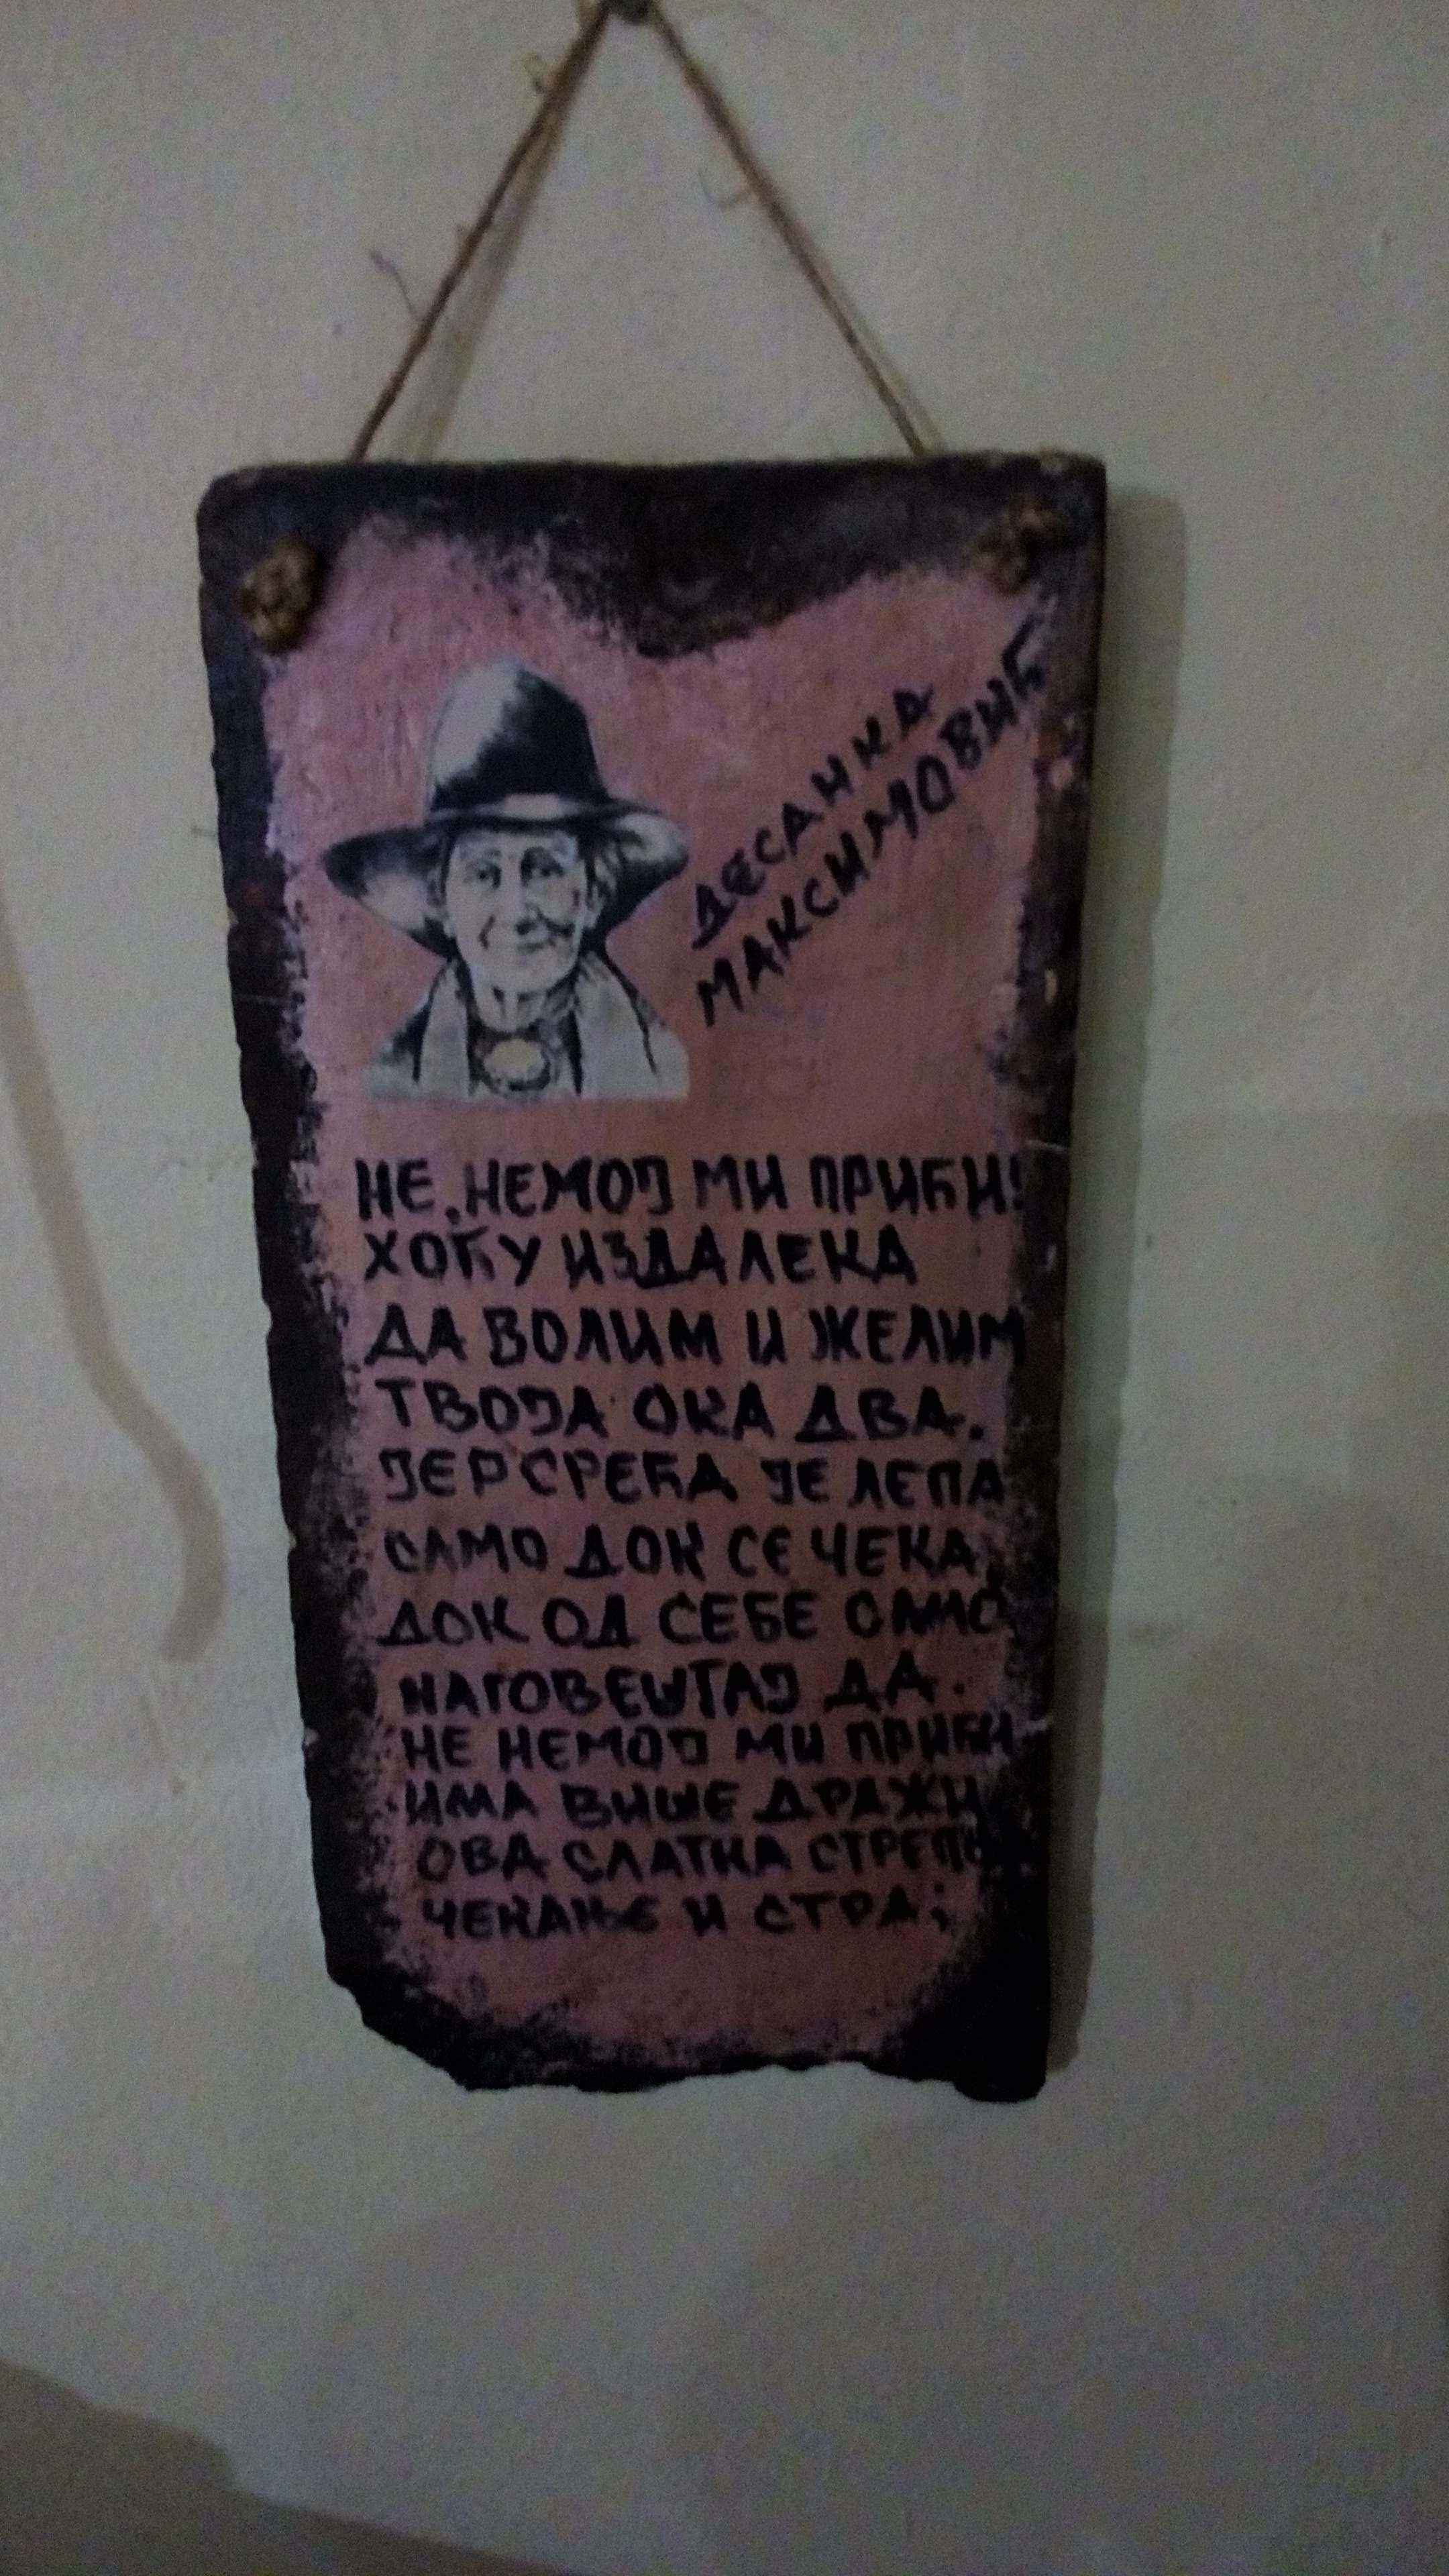 ДЕСАНКА
МАКСИМОВИЋ
НЕ, НЕМОЈ МИ ПРИЋИ!
ХОЋУ ИЗДАЛЕКА
ДА ВОЛИМ И ЖЕЛИМ
ТВОЈА ОКА ДВА.
ЈЕР СРЕЋА ЈЕ ЛЕПА
САМО ДОК СЕ ЧЕКА
ДОК ОД СЕБЕ САМО
НАГОВЕШТАЈ ДА.
НЕ НЕМОЈ МИ ПРИЋИ
ИМА ВИШЕ ДРАЖИ
ОВА СЛАТКА
ЧЕКАЊЕ И СТРА;